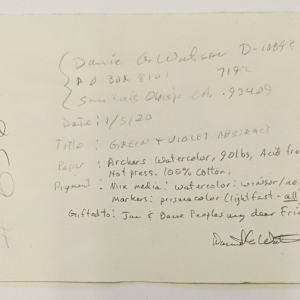 D-10843
P.O BOX 8101 7192
San Luis Obispo CA. 93409
Date: 1/5/20
Title: GREEN & VIOLET ABSTRACT
Paper: Archers Watercolor, 90lbs, Acid free
Hot press. 100% Cotton.
Pigment: Mix media: watercolor: windsor/
markers: prismacolor (lightfast - all
Gifted to: Jan & Dave Peoples my dear